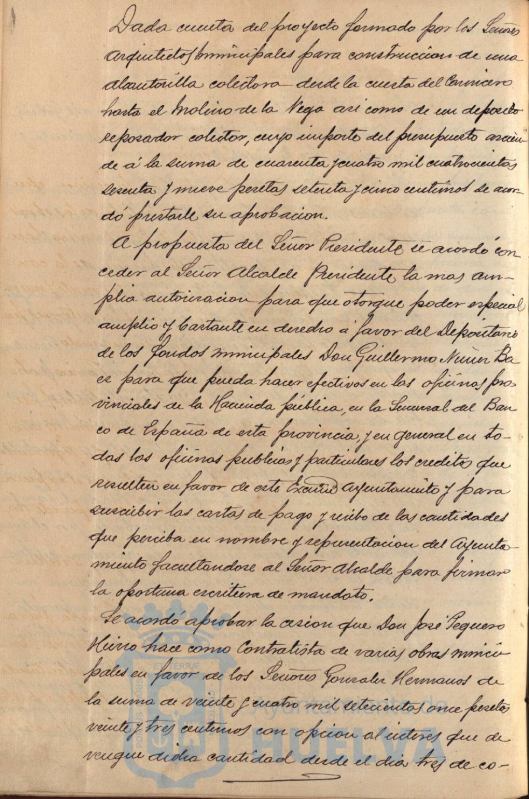 Dada cuenta del proyecto formado por los Señores
Arquitectos municipales para construccion de una
alcantarilla colectora desde la cuesta del Carnicero
hasta el Molino de la Vega asi como de un deposito
reposador colector, cuyo importe del presupuesto ascien
de á la suma de cuarenta y cuatro mil cuatrocientas
sesenta y nueve pesetas setenta y cinco centimos se acor
dó prestarle su aprobacion.
A propuesta del Señor Presidente se acordó con
ceder al Señor Alcalde Presidente la mas am-
plia autorizacion para que otorgue poder especial
amplio y bastante en derecho á favor del Depositario
de los fondos municipales Don Guillermo Nuñez Ba
ez para que pueda hacer efectivos en las oficinas pro
vinciales de la Hacienda pública, en la Sucursal del Ban
co de España de esta provincia, y en general en to-
das las oficinas publicas y particulares los creditos que
resulten en favor de este Excmo Ayuntamiento y para
suscribir las cartas de pago y recibo de las cantidades
que perciba en nombre y representacion del Ayunta-
miento facultandose al Señor Alcalde para firmar
la oportuna escritura de mandato.
Se acordó aprobar la cesion que Don José Peguero
hace como Contratista de varias obras munici-
pales en favor de los Señores Gonzalez Hermanos de
la suma de veinte y cuatro mil setecientas once pesetas
veinte y tres centimos con opcion al interes que de
vengue dicha cantidad desde el dia tres de co-
HUELVA